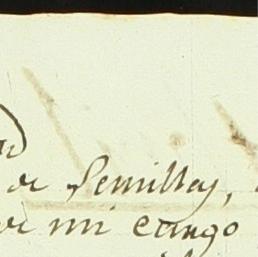 de Semillas,
de mi cargo